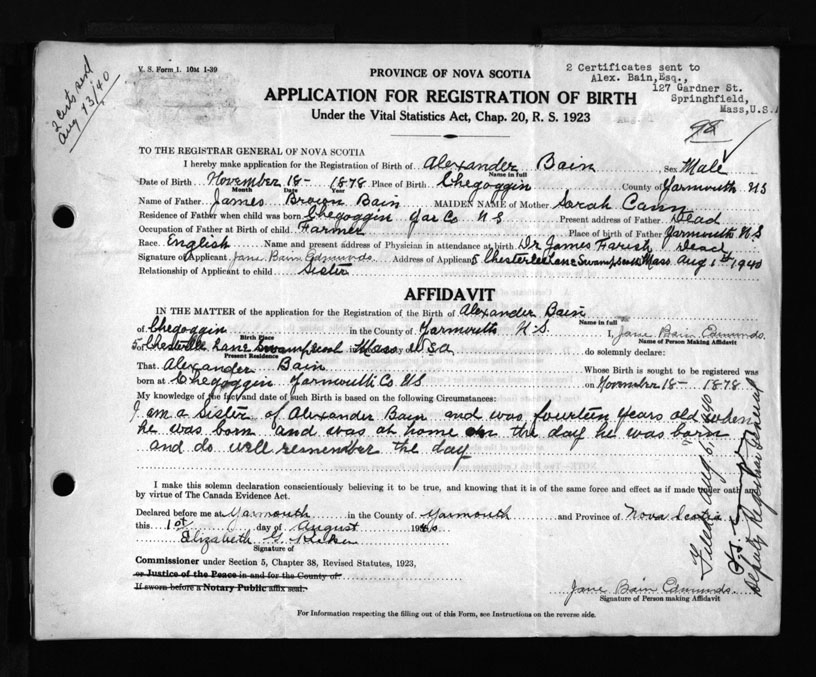 V. S. Form 1. 10M 1-39
2 certs. sent
Aug 13/40
PROVINCE OF NOVA SCOTIA
2 Certificates sent to
Alex. Bain,Esq.,
127 Gardner St.
Springhfield,
Mass,U.S.A
APPLICATION FOR REGISTRATION OF BIRTH
Under the Vital Statistics Act, Chap. 20, R. S. 1923
TO THE REGISTRAR GENERAL OF NOVA SCOTIA
I hereby make application for the Registration of Birth of Alexander Bain Sex Male
Name in full
Date of Birth November 18- 1878 Place of Birth Chegoggin County of Yarmouth NS
Month Date Year
Name of Father James Brown Bain MAIDEN NAME of Mother Sarah Cann
Residence of Father when child was born Chegoggin Yar Co N S Present address of Father Dead
Occupation of Father at Birth of child Farmer Place of birth of Father Yarmouth N.S
Race English Name and present address of Physician in attendance at birth Dr James Farish dead
Signature of Applicant Jane Bain Edmunds Address of Applicant 5 Chesterlee Lane Swampscott Mass Aug 1st 1940
Relationship of Applicant to child Sister
AFFIDAVIT
IN THE MATTER of the application for the Registration of the Birth of Alexander Bain
Name in full
of Chegoggin in the County of Yarmouth N.S. I, Jane Bain Edmunds
Birth Place Name of Person Making Affidavit
of 5 Lane Mass USA do solemnly declare:
Present Residence
That Alexander Bain Whose Birth is sought to be registered was
born at Chegoggin Yarmouth Co NS on November 18- 1878
My knowledge of the fact and date of such Birth is based on the following Circumstances:
I am a sister of Alexander Bain and was fourteen years old when
he was born and was at home on the day he was born
and do well remember the day
I make this solemn declaration conscientiously believing it to be true, and knowing that it is of the same force and effect as if made under oath
by virtue of The Canada Evidence Act.
Declared before me at Yarmouth in the County of Yarmouth and Province of Nova Scotia
this 1st day of August 1940
Elizabeth G.
Signature of
Commissioner under Section 5, Chapter 38, Revised Statutes, 1923,
or Justice of the Peace in and for the County of
If sworn before a Notary Public affix seal.
Jane Bain Edmunds
Signature of Person making Affidavit
For Information respecting the filling out of this Form, see Instructions on the reverse side.
Filed Aug 6, 1940
Deputy Registrar General